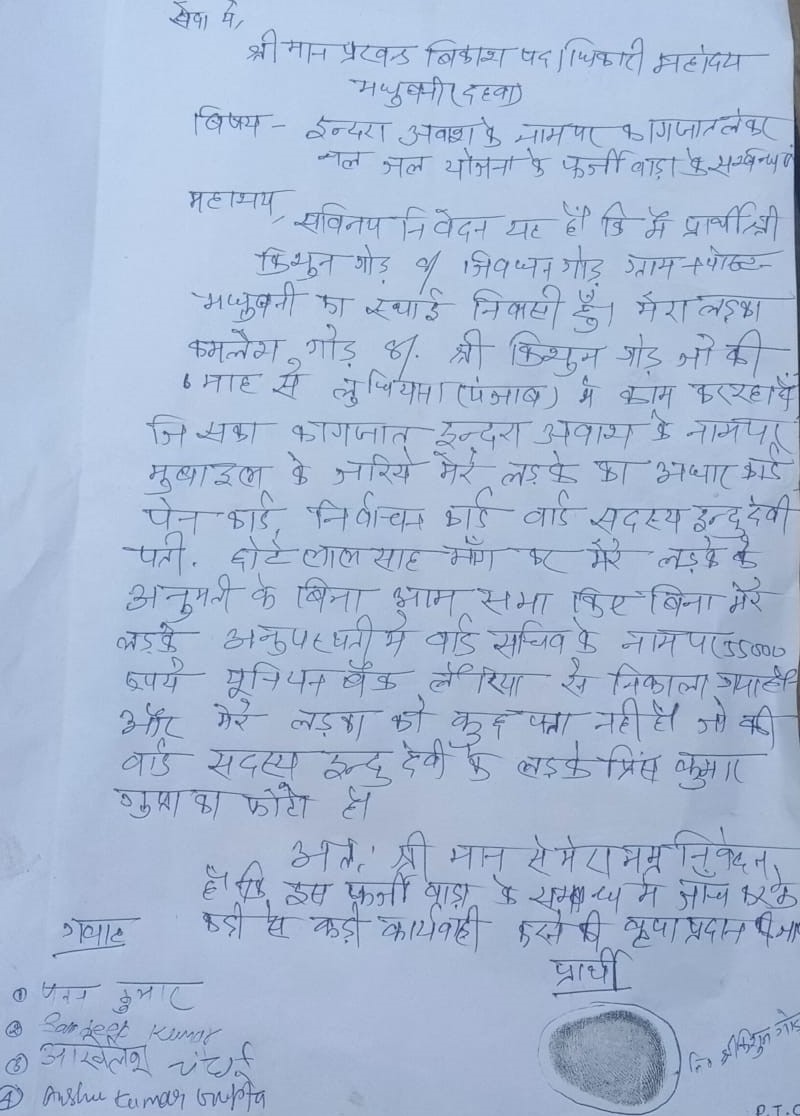 सेवा में,
श्री मान प्रखण्ड बिकाश पदाधिकारी महोदय
मधुबनी (दहवा)
बिषय - इन्दरा अवाश के नाम पर कागजात लेकर
नल जल योजना के फर्जी वाड़ा के सम्बन्ध में
महाशय,
सविनय निवेदन यह है कि मैं प्रार्थी श्री
किशुन गोड़ S/o शिवधन गोड़ ग्राम + पोस्ट -
मधुबनी का स्थाई निवासी हूँ। मेरा लड़का
कमलेश गोड़ S/o. श्री किशुन गोड़ जो की
6 माह से लुधियाना (पंजाब) में काम कर रहा है
जिसका कागजात इन्दरा अवाश के नाम पर
मुबाइल के जरिये मेरे लड़के का अधार कार्ड
पेन कार्ड, निर्वाचन कार्ड वार्ड सदस्य इन्दु देवी
पती. छोटे लाल साह माँग कर मेरे लड़के के
अनुमती के बिना आम सभा किए बिना मेरे
लड़के अनुपस्थती में वार्ड सचिव के नाम पर 35000
रूपये यूनियन बैंक से निकाला गया है
और मेरे लड़का को कुछ पता नहीं है जो की
वार्ड सदस्य इन्दु देवी के लड़के प्रिंस कुमार
गुप्ता का फोटो है।
अतः श्री मान से मेरा नम्र निवेदन
है कि इस फर्जी वाड़ा के सम्बन्ध में जाँच करके
कड़ी से कड़ी कार्यवाही करने की कृपा प्रदान की जाए
गवाह
प्रार्थी
① कुमार
② Sandeep Kumar
③
④ Anshu Kumar Gupta
नि० श्री किशुन गोड़